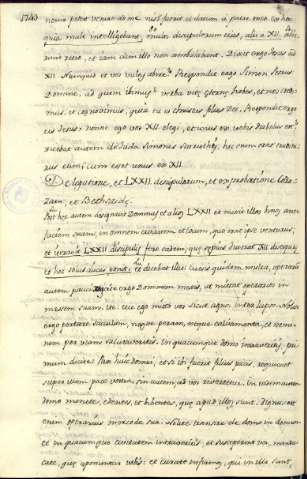 1743
nemo potest venire ad me nisi fuerit ei datum a patre meo.
male intelligebant, multi discipulorum eius, abierunt
retro, et iam cum illo non ambulabant. Dixit ergo Iesus ad
XII Nunquid et vos vultis abire? Respondit ergo Simon Petrus
Domine, ad quem ibimus? verba vitę ęternę habes, et nos
et cognovimus, quia tu es christus filius Dei. Respondit ergo
eis Iesus: nonne ego vos XII elegi, et unus ex vobis diabolus
autem de Iuda Simonis hic enim erat
eum, cum esset unus ex XII.
De legatione, et LXXII discipulorum, et exprobatione
et Bethsaidę.
Post hęc autem designavit Dominus et alios LXXII et misit illos binos ante
faciem suam, in omnem civitatem et locum, quo erat ipse venturus,
LXXII discipulis
et hoc et dicebat illis: messis quidem multa, operarii
autem pauci. rogate ergo Dominum messis, ut mittat operarios in
messem suam. ite: ecce ego mitto vos sicut agnos inter lupos. Nolite
ergo portare sacculum, neque peram, neque calciamenta, et neminem
per viam salutaveritis. In quamcunque domum intraveritis,
primum dicite: Pax huic domui, et si ibi fuerit filius pacis, requiescet
super illum pax vestra, sin autem ad vos revertetur. In eadem autem
domo manete, edentes, et bibentes, quę apud illos sunt. Dignus est
enim operarius mercede sua. nolite transire de domo in domum
et in quamcunque civitatem intraveritis, et susceperint vos, manducate,
quę apponuntur vobis: et curate infirmos, qui in illa sunt,